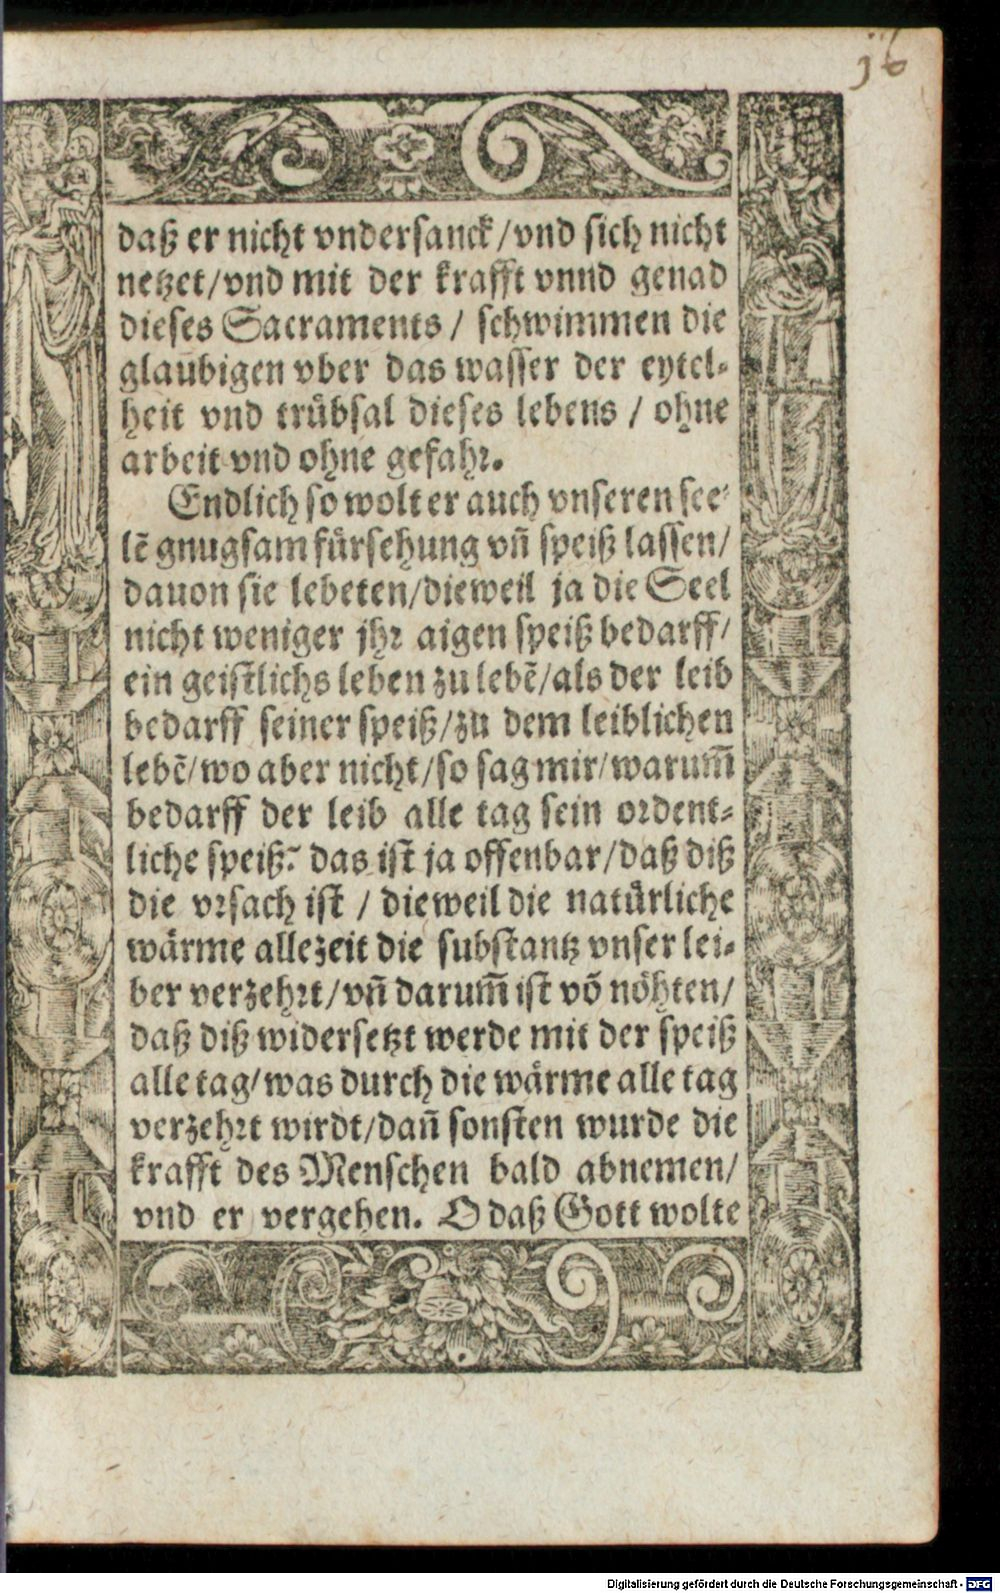 36
daß er nicht vndersanck/vnd sich nicht
netzet/vnd mit der krafft vnnd genad
dieses Sacraments / schwimmen die
glaubigen vber das wasser der eytel-
heit vnd trübsal dieses lebens / ohne
arbeit vnd ohne gefahr.
Endlich so wolt er auch vnseren see-
lẽ gnugsam fürsehung vñ speiß lassen/
dauon sie lebeten/dieweil ja die Seel
nicht weniger jhr aigen speiß bedarff/
ein geistlichs leben zu lebẽ/als der leib
bedarff seiner speiß/zu dem leiblichen
lebẽ/wo aber nicht/so sag mir/warum̃
bedarff der leib alle tag sein ordent-
liche speiß? das ist ja offenbar/daß diß
die vrsach ist / dieweil die natürliche
wärme allezeit die substantz vnser lei-
ber verzehrt/vñ darum̃ ist võ nöhten/
daß diß widersetzt werde mit der speiß
alle tag/was durch die wärme alle tag
verzehrt wirdt/dañ sonsten wurde die
krafft des Menschen bald abnemen/
vnd er vergehen. O daß Gott wolte
Digitalisierung gefördert durch die Deutsche Forschungsgemeinschaft - DFG